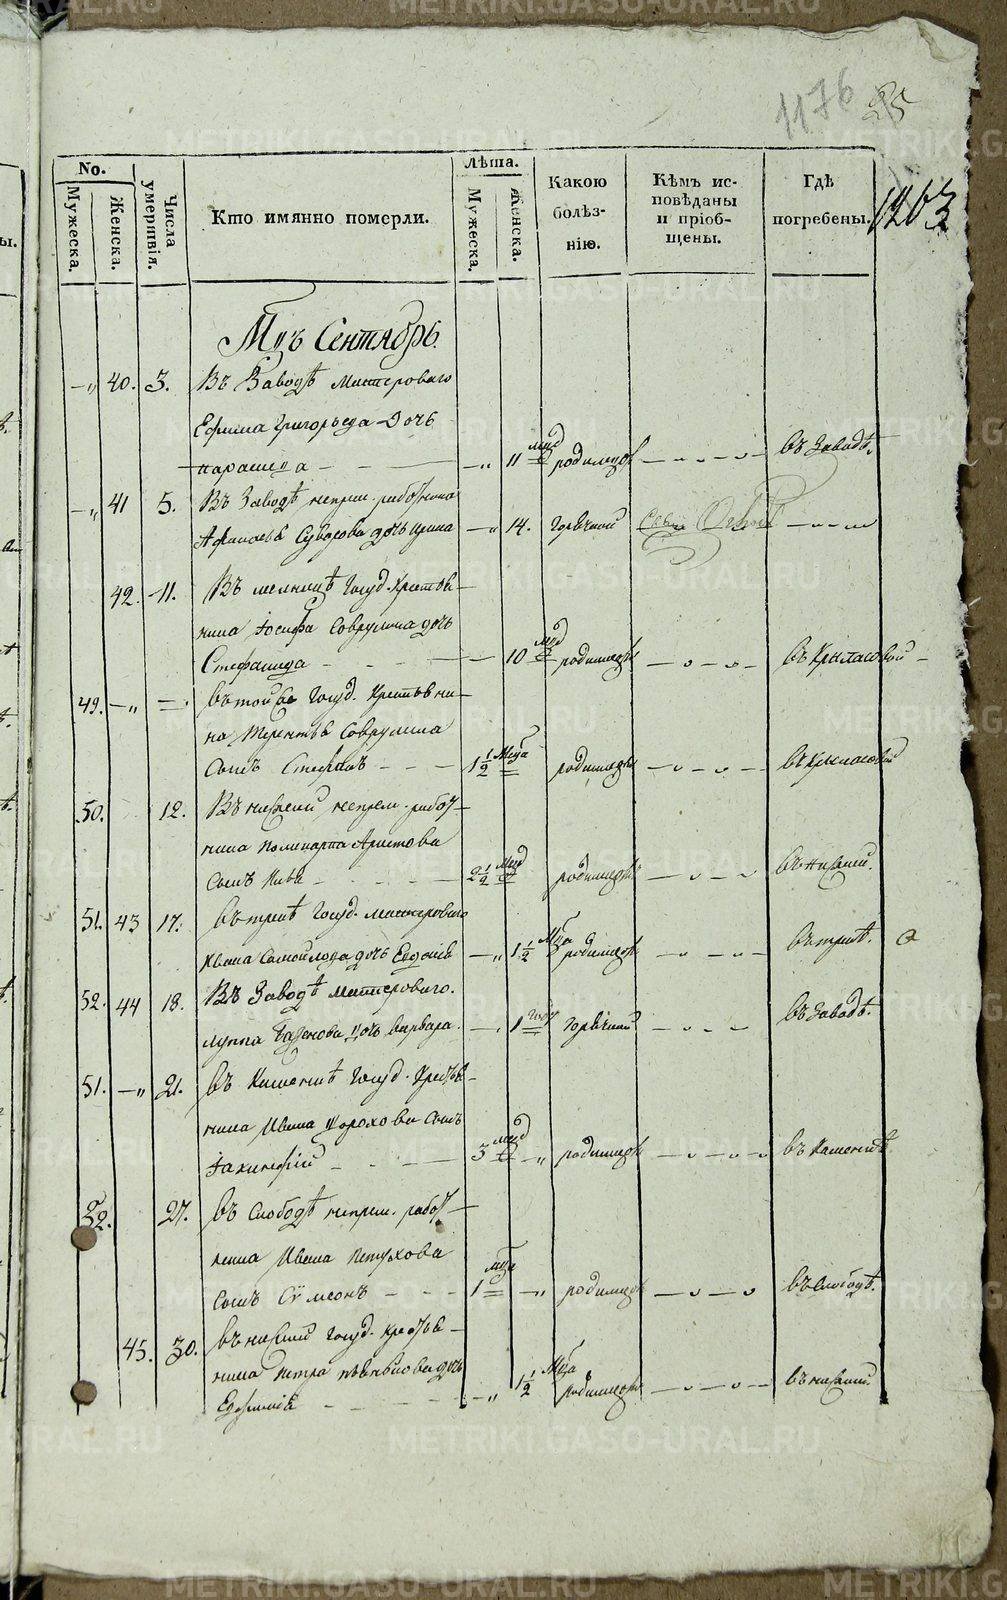 1176 25
1203
No.
Мужеска.
Женска.
Числа умертвія.
Кто имянно померли.
Лѣта.
Мужеска.
Женска.
Какою болѣз-
нію.
Кѣмъ ис-
повѣданы
и пріоб-
щены.
Гдѣ
погребены.
Мцъ Сентябрь.
40. 3. Въ Заводѣ мастероваго
Ефима Григорьева Дочь
парасцева 11 мцд родимцовъ въ Заводѣ.
41 5. Въ Заводѣ непрем. работника
14. горячкой
42. 11. Въ Государ. Крестья-
нина Іосифа дочь
Стефанида 10 мцд родимцовъ въ Крыласовой
49. въ той же Госуд. Крестьяни-
на Терентья
сынъ Стефанъ 1 1/2 Мцa родимцовъ въ Крыласовой
50. 12. Въ нижней непрем. работ-
ника поликарпа Аристова
сынъ 2 1/2 родимцовъ въ нижней.
51. 43 17. Госуд. мастероваго
Ивана Самойлова дочь Евдокія 1 1/2 Мца родимцовъ
52. 44 18. Въ Заводѣ мастероваго.
дочь варвара. 1 году горячкой въ Заводѣ.
51. 21. въ Каменкѣ Госуд. Крестья-
нина Ивана Шорохова сынъ
Іакинфій 3 родимцовъ въ Каменкѣ
52. 27. въ Слободѣ непрем. работ-
ника Ивана Петухова
сынъ Сѵмеонъ 1 мца родимцовъ въ Слободѣ.
45. 30. въ нижней Госуд. крестья-
нина Петра дочь
Евфимія 1 1/2 Мца родимцовъ въ нижней.
METRIKI.GASO-URAL.RU